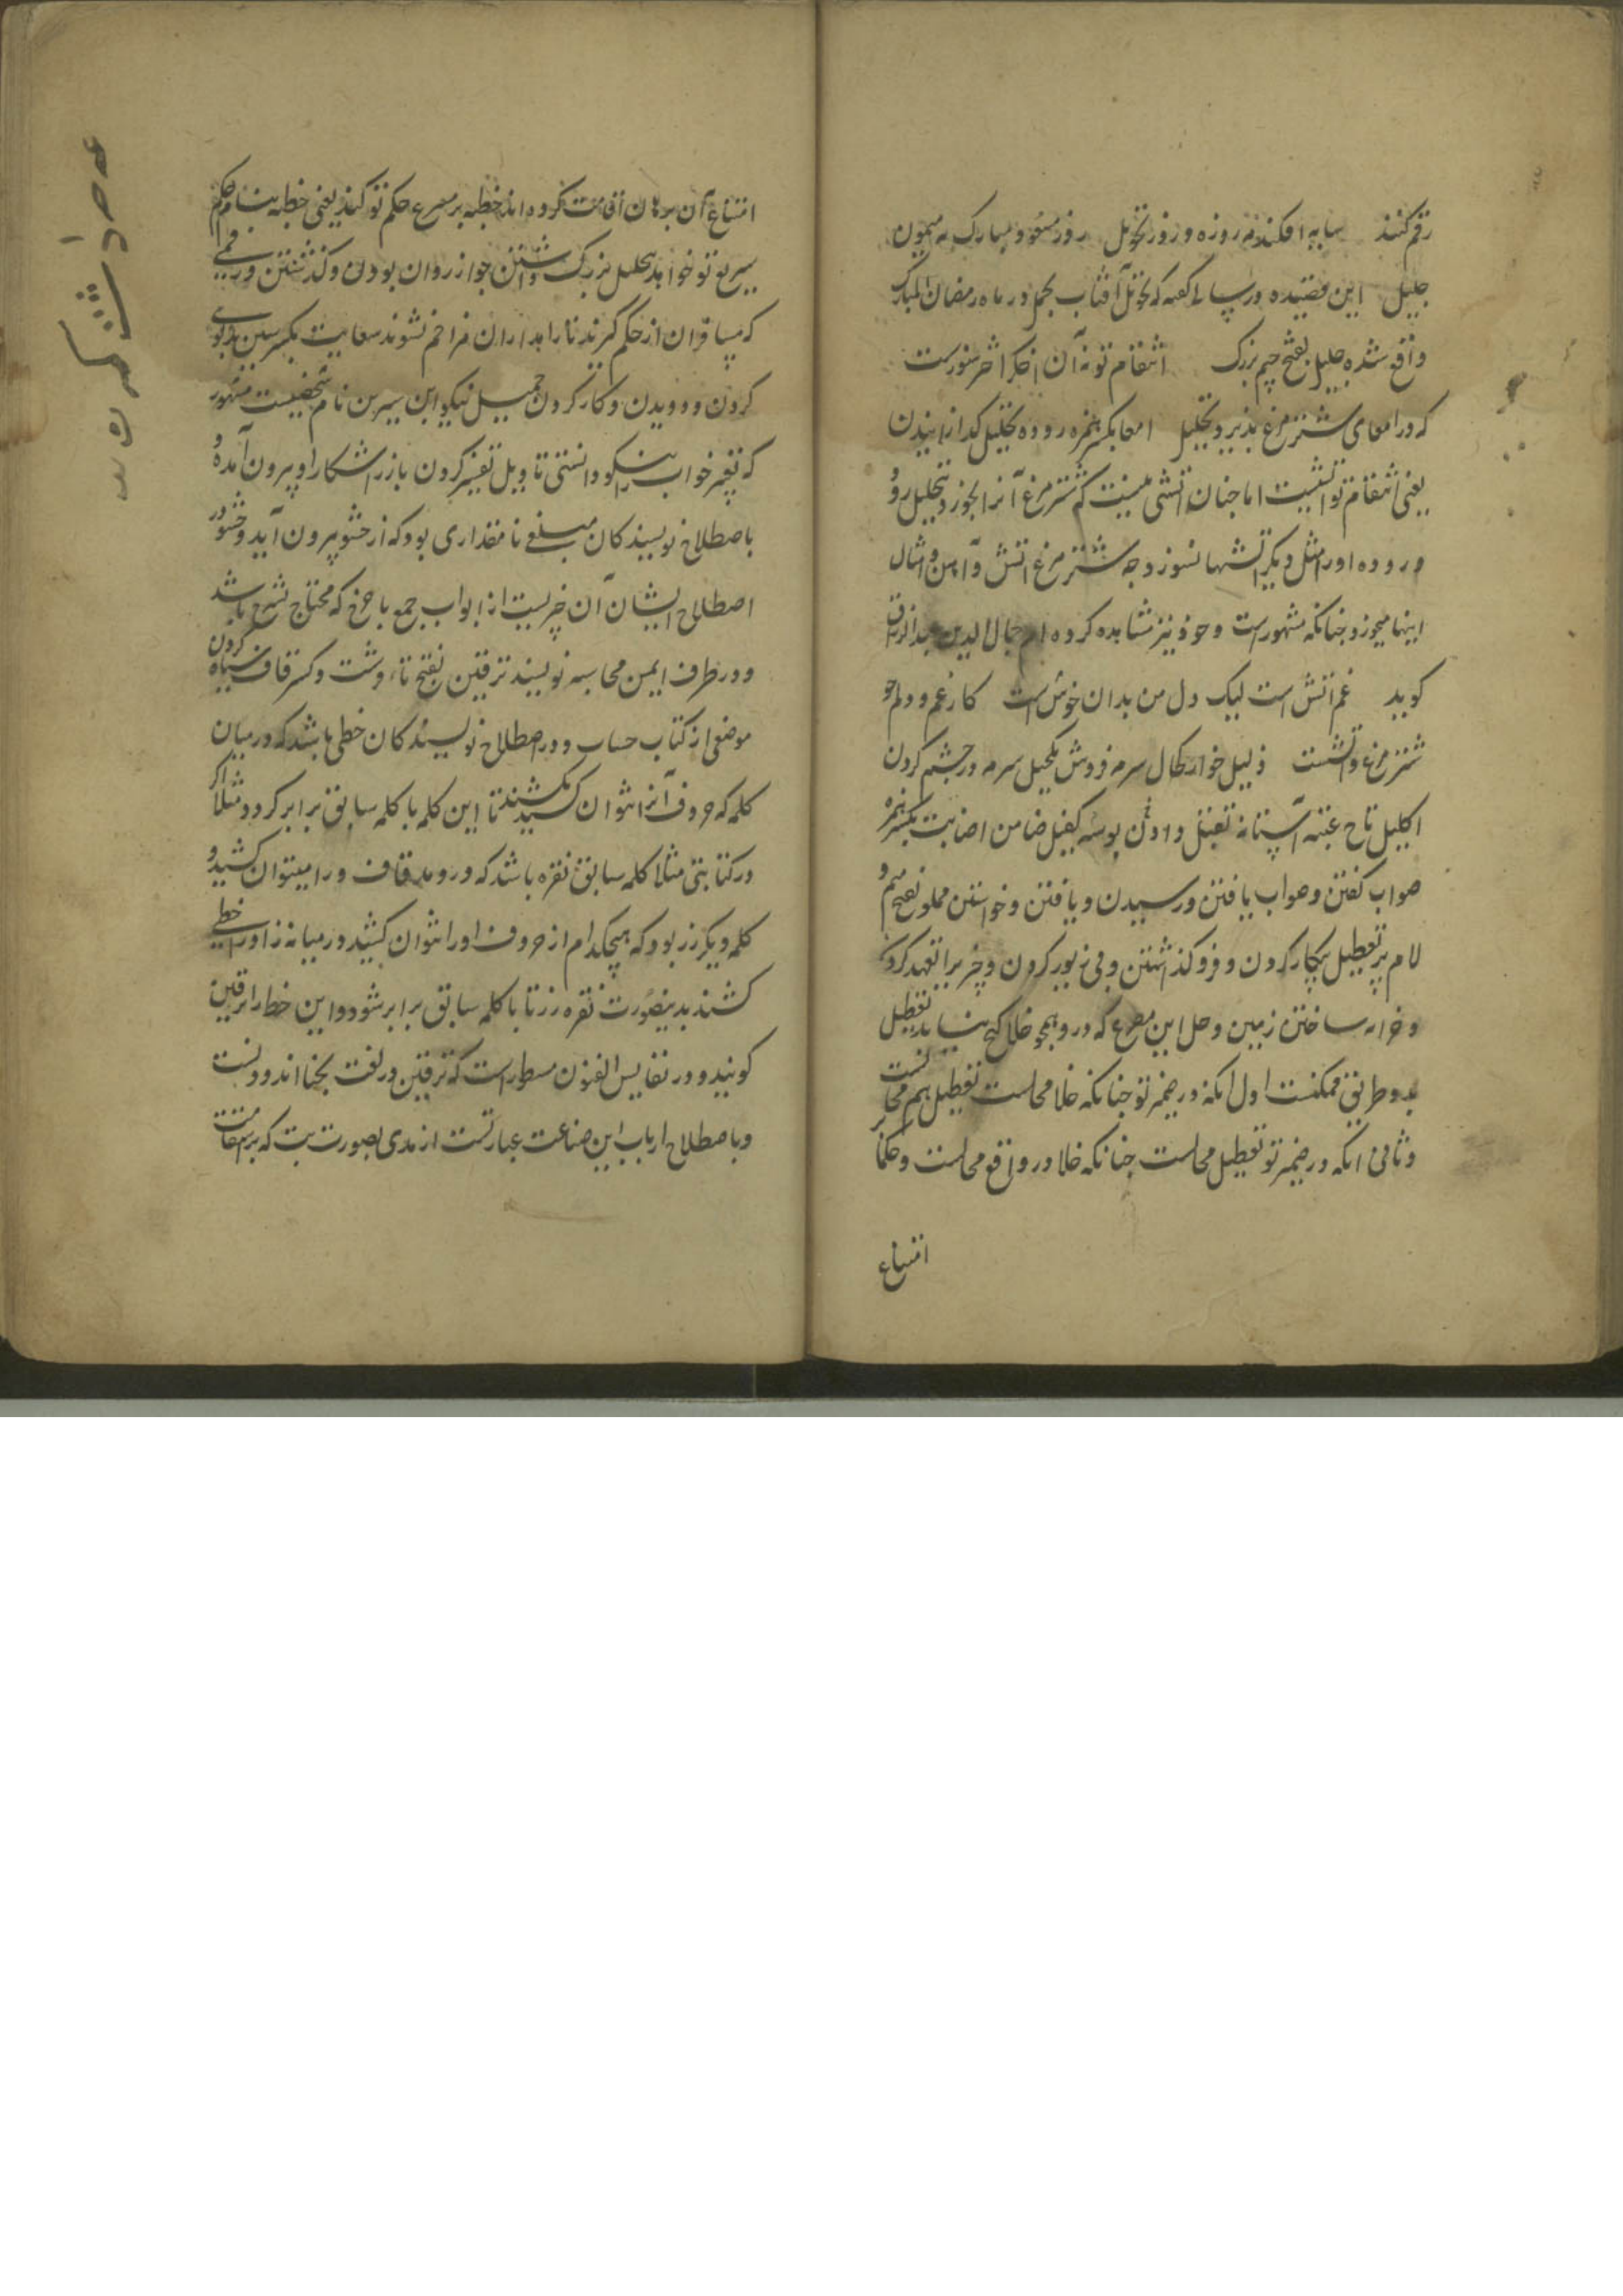 رقم کنند سایه افکند مه روزه و روز تحویل روز مسعود مبارک مه میمون
جلیل این قصیده در سالی گفته که تحویل آفتاب بحمل در ماه رمضان المبارک
واقع شده جلیل بفتح جیم بزرگ انتقام تو نه آن اخکر اخر سوزست
که در امعای شترمرغ پذیرد تحلیل امعا بکسر همزه روده تحلیل کدازانیدن
یعنی انتقام تو آتشیست اما چنان آتشی نیست که شترمرغ آنرا بخورد و تحلیل رود
و روده او را مثل دیکر آتشها نسوزد چه شترمرغ آتش و آهن و امثال
اینها میخورد چنانکه مشهور است و خود نیز مشاهده کرده ام جمال الدین عبدالرزاق
کوید غم آتش است لیک دل من بدان خوش است کار غم و دلم چو
شترمرغ و آتشست ذلیل خوار کحال سرمه فروش تکحیل سرمه در چشم کردن
اکلیل تاج عتبه آستانه تقبیل دادن بوسه کفیل ضامن اصابت بکسر همزه
صواب کفتن و صواب یافتن و رسیدن و یافتن و خواستن مملو بفتح میم و
لام پر تعطیل بیکار کردن و فرو کذاشتن و بی زیور کردن و چیزیرا تعهد کردن
و خرابه ساختن زمین و حل این مصرع که درو همچو خلا کنج نیابد تعطیل
بدو طریق ممکنست اول آنکه در ضمیر تو چنانکه خلا محالست تعطیل هم محالست
و ثانی آنکه در ضمیر تو تعطیل محالست چنانکه خلا در واقع محالست و حکما
امتناع
امتناع آن برهان اقامت کرده اند خطبه بر مصرع حکم تو کنند یعنی خطبه بنام حکم
سریع تو خواند جلیل بزرک داشتن جواز روان بودن و کذشتن و رقمی
که مسافران از حکم کیرند تا راهداران مزاحم نشوند سعایت بکسر سین بدکویی
کردن و دویدن و کار کردن جمیل نیکو ابن سیرین نام شخصیست مشهور
که تعبیر خواب نیکو دانستی تاویل تفسیر کردن بارز آشکارا و بیرون آمده و
باصطلاح نویسندکان مبلغی یا مقداری بود که از حشو بیرون آید و حشو در
اصطلاح ایشان آن چیزیست از ابواب جمع یا خرج که محتاج بشرح باشد
و در طرف ایمن محاسبه نویسند ترقین بفتح تاء قرشت و کسر قاف سیاه کردن
موضعی از کتاب حساب و در اصطلاح نویسندکان خطی باشد که در میان
کلمه که حروف آنرا نتوان کشید بکشند تا این کلمه با کلمه سابق برابر کردد مثلا اکر
در کتابتی مثلا کلمه سابق نقره باشد که درو مد قاف و را میتوان کشید و
کلمه دیکر زر بود که هیچکدام از حروف او را نتوان کشید در میانه زا و را خطی
کشند بدینصورت نقره زر تا با کلمه سابق برابر شود و این خط را ترقین
کویند و در نفایس الفنون مسطور است که ترقین در لغت بحنا اندودنست
و باصطلاح ارباب این صناعت عبارتست از مدی بصورت بت که برمقامات